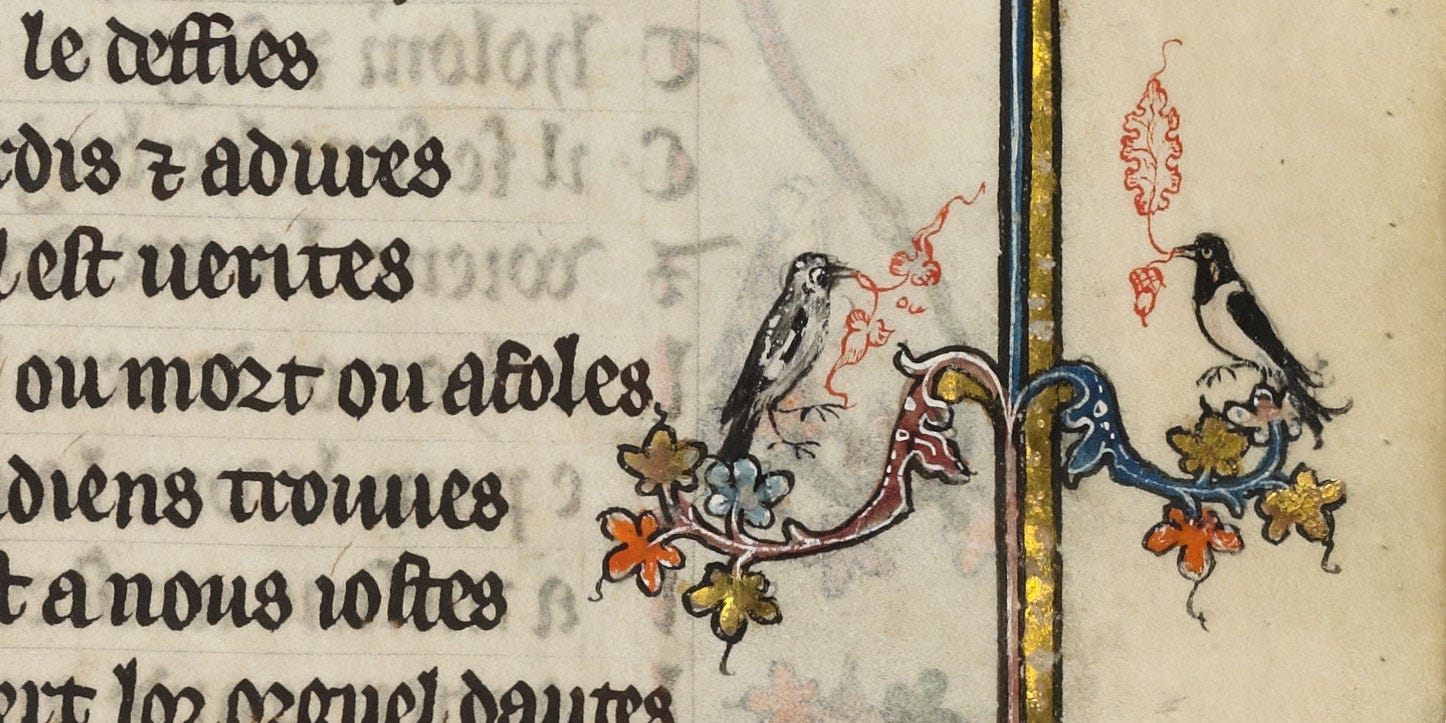 le deffies
rdis ⁊ adures
est uerites
ou mort ou afoles
diens trouues
t a nous iostes
ert lor orguel dautes